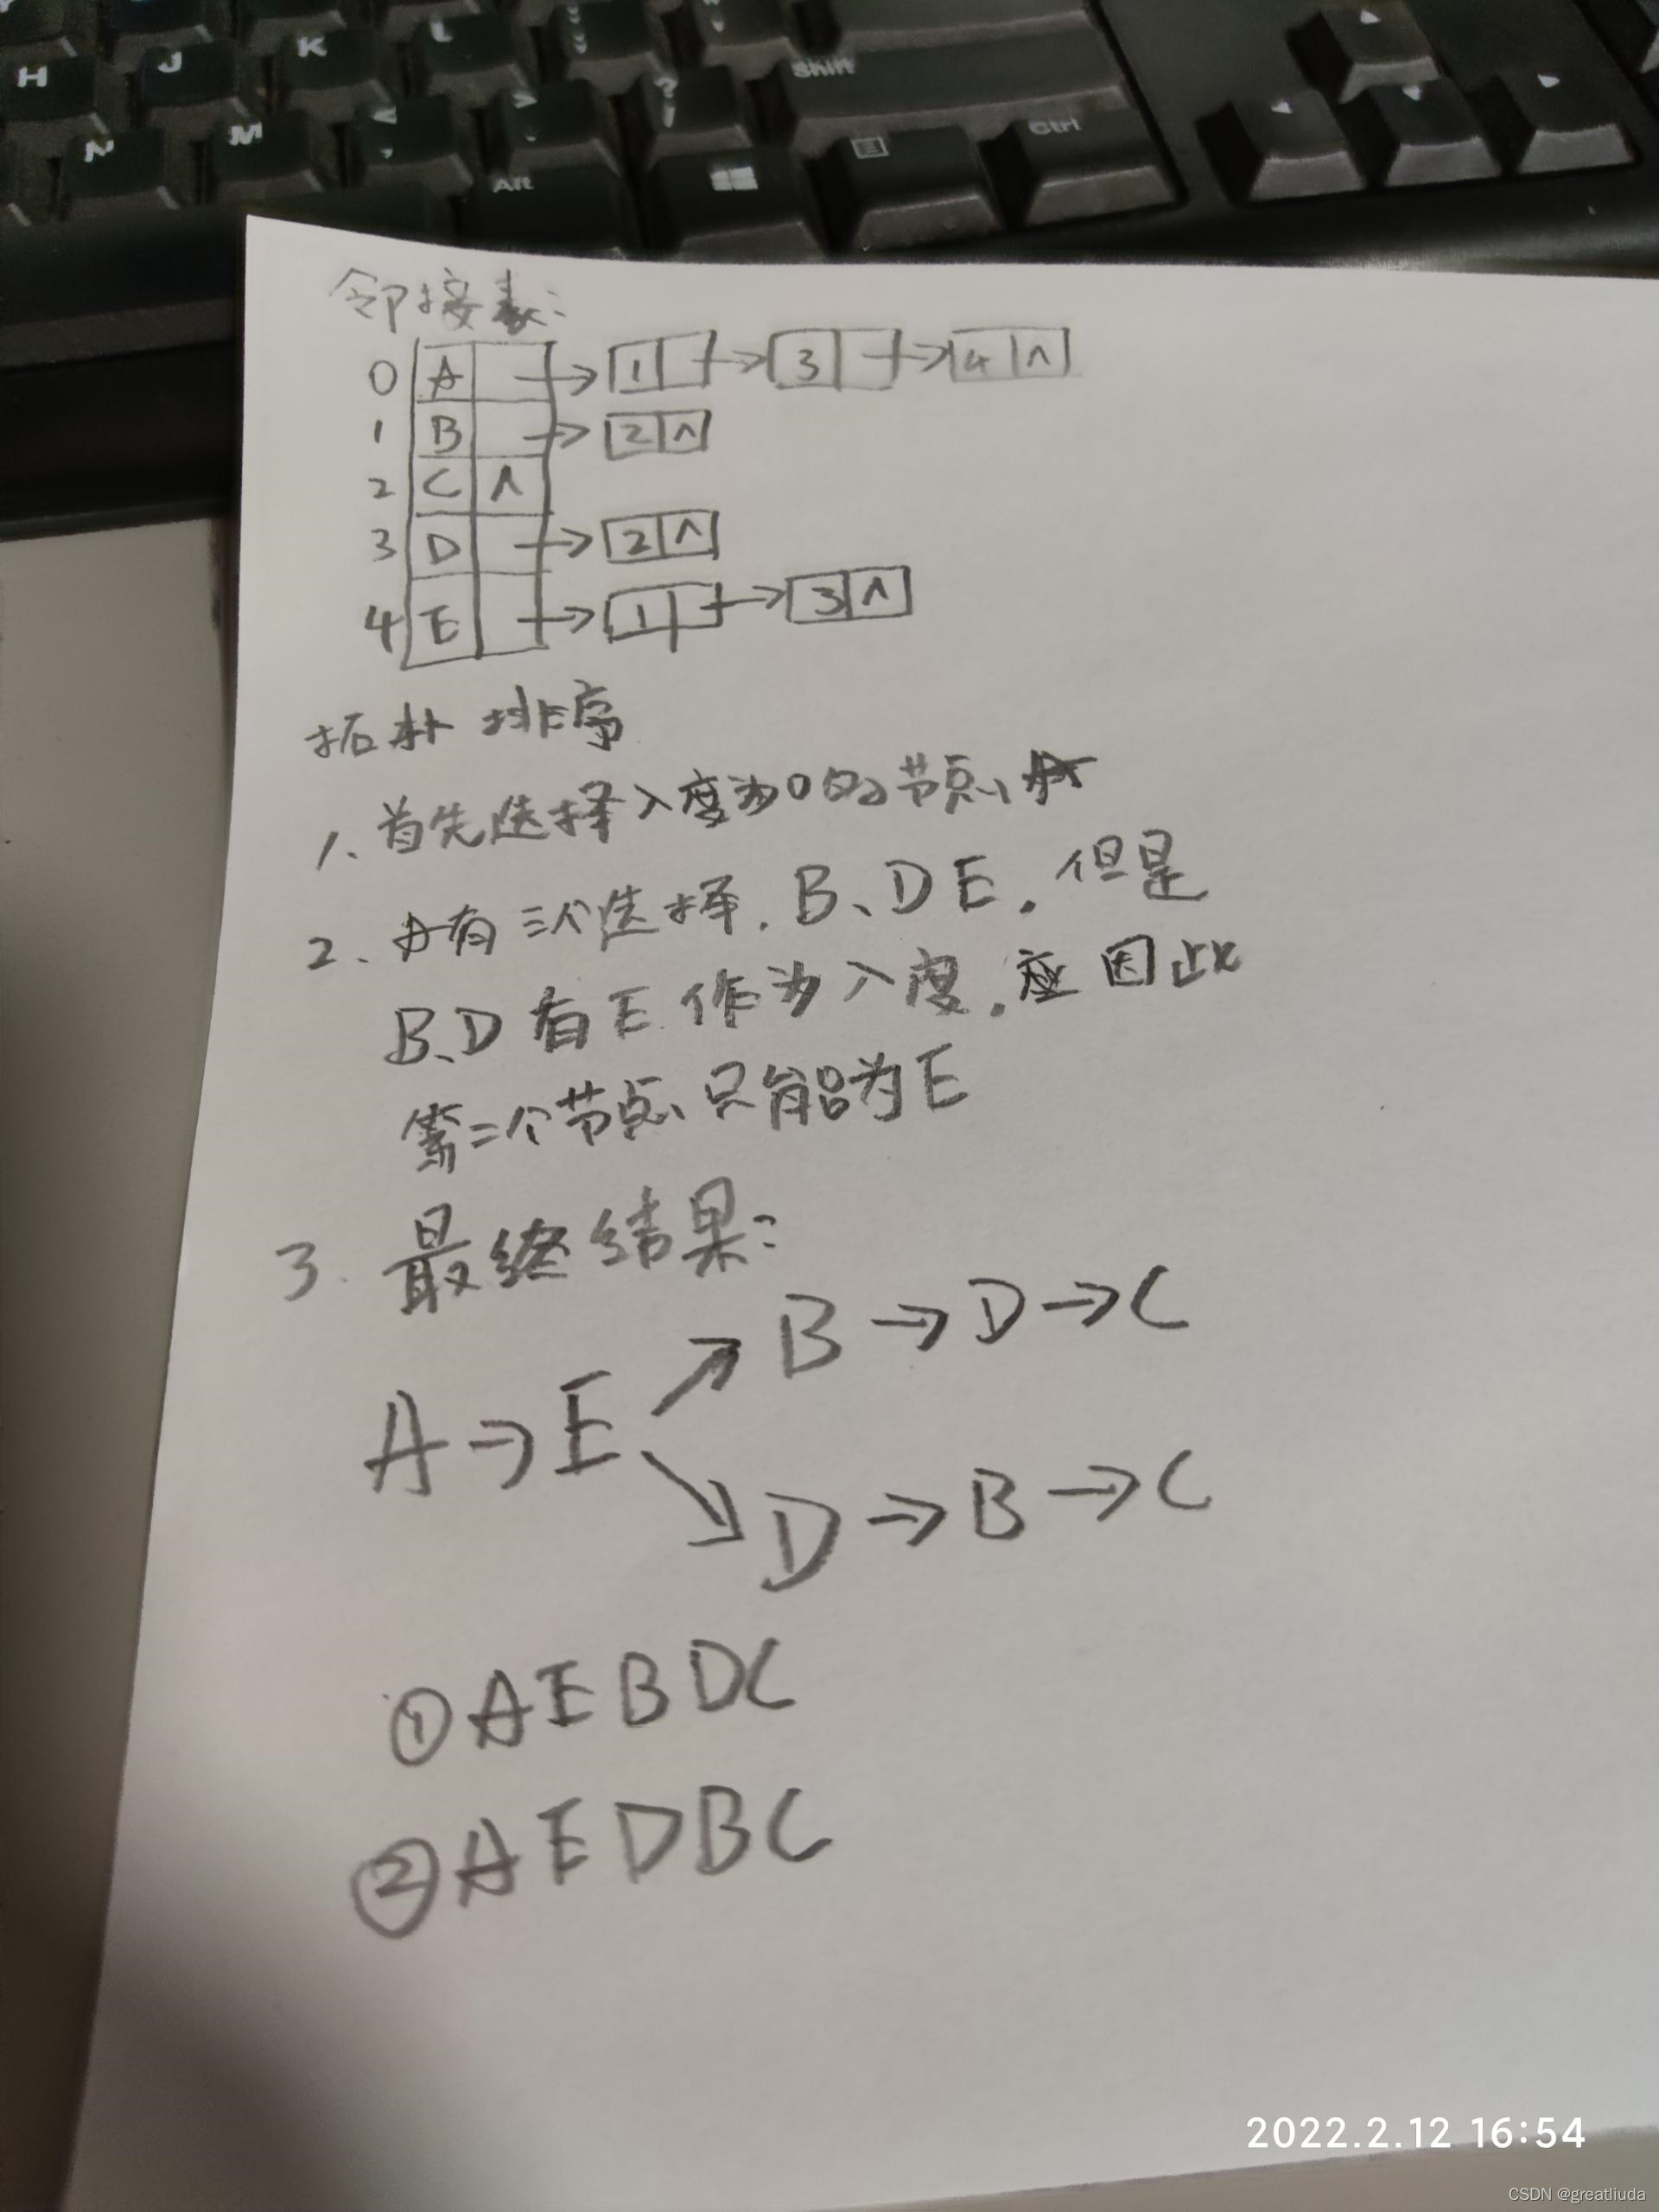 H J K L
N M < > ? / Shift
, .
Alt Ctrl
邻接表:
0 A 1 3 4 ∧
1 B 2 ∧
2 C ∧
3 D 2 ∧
4 E 1 3 ∧
拓朴排序
1、首先选择入度为0的节点A
2、A有三个选择.B、D E.但是
B、D有E作为入度.应因此
第二个节点只能为E
3.最终结果:
B→D→C
A→E
D→B→C
①AEBDC
②AEDBC
2022.2.12 16:54
CSDN @greatliuda